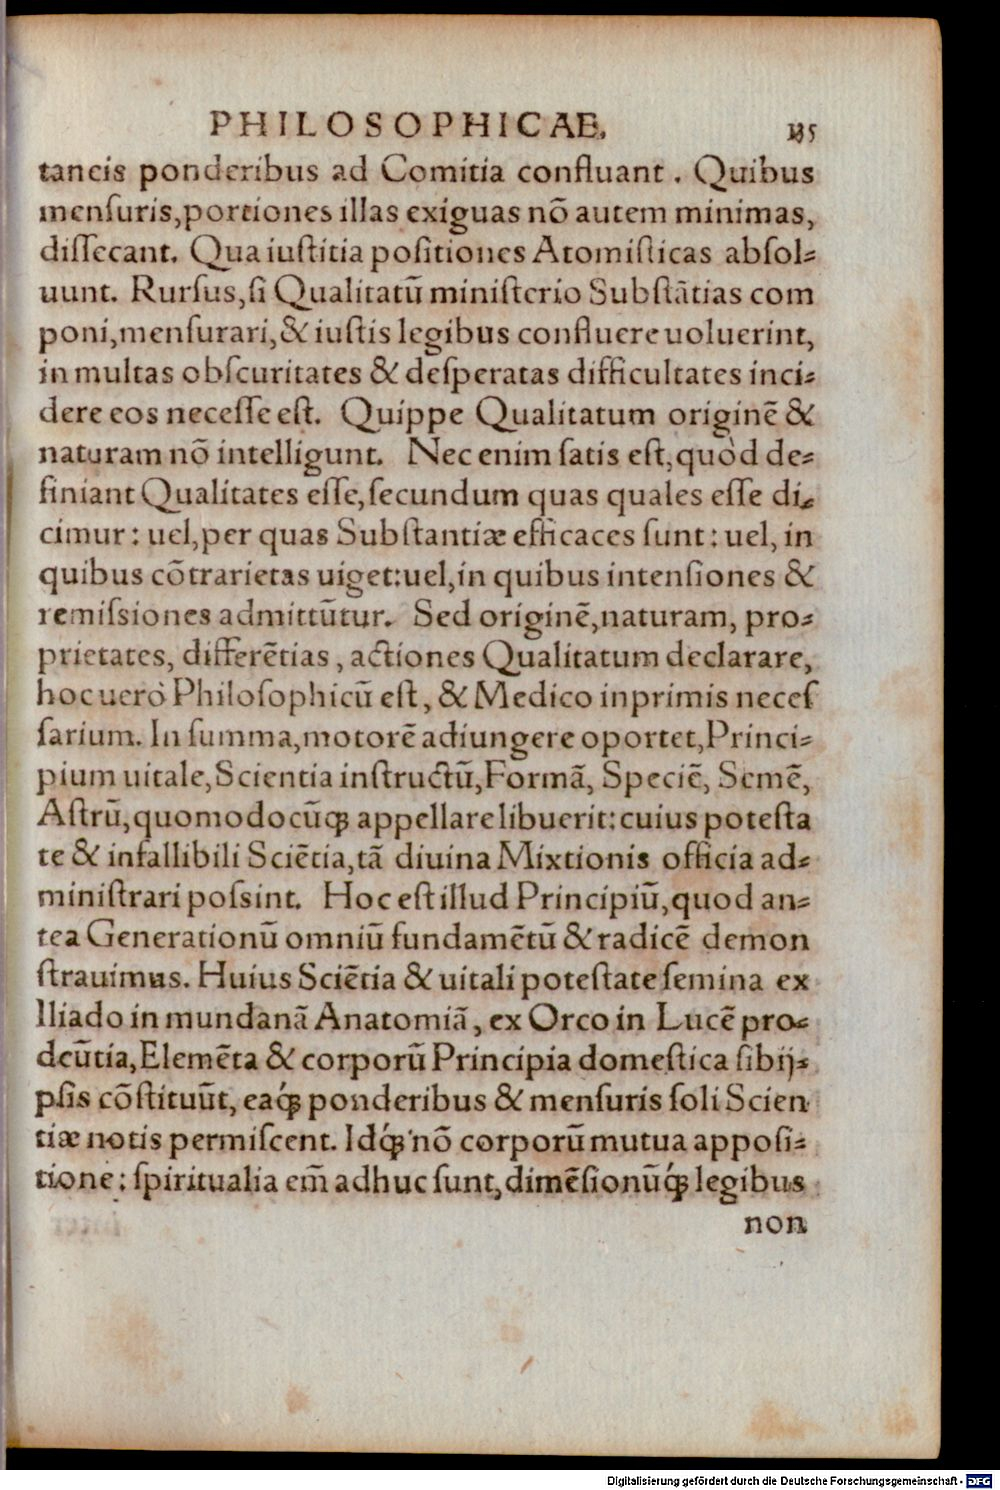 PHILOSOPHICAE. 135
tancis ponderibus ad Comitia confluant. Quibus
menſuris, portiones illas exiguas nõ autem minimas,
diſſecant. Qua iuſtitia poſitiones Atomiſticas abſol⸗
uunt. Rurſus, ſi Qualitatũ miniſterio Subſtãtias com
poni, menſurari, & iuſtis legibus confluere uoluerint,
in multas obſcuritates & deſperatas difficultates inci⸗
dere eos neceſſe eſt. Quippe Qualitatum originẽ &
naturam nõ intelligunt. Nec enim ſatis eſt, quòd de⸗
finiant Qualitates eſſe, ſecundum quas quales eſſe di⸗
cimur: uel, per quas Subſtantiæ efficaces ſunt: uel, in
quibus cõtrarietas uiget: uel, in quibus intenſiones &
remiſsiones admittũtur. Sed originẽ, naturam, pro⸗
prietates, differẽtias, actiones Qualitatum declarare,
hoc uerò Philoſophicũ eſt, & Medico inprimis neceſ
ſarium. In ſumma, motorẽ adiungere oportet, Princi⸗
pium uitale, Scientia inſtructũ, Formã, Speciẽ, Semẽ,
Aſtrũ, quomodocũqꝫ appellare libuerit: cuius poteſta
te & infallibili Sciẽtia, tã diuina Mixtionis officia ad⸗
miniſtrari poſsint. Hoc eſt illud Principiũ, quod an⸗
tea Generationũ omniũ fundamẽtũ & radicẽ demon
ſtrauimus. Huius Sciẽtia & uitali poteſtate ſemina ex
Iliado in mundanã Anatomiã, ex Orco in Lucẽ pro⸗
deũtia, Elemẽta & corporũ Principia domeſtica ſibij⸗
pſis cõſtituũt, eaq́ꝫ ponderibus & menſuris ſoli Scien
tiæ notis permiſcent. Idq́ꝫ nõ corporũ mutua appoſi⸗
tione: ſpiritualia em̃ adhuc ſunt, dimẽſionũq́ꝫ legibus
non
Digitalisierung gefördert durch die Deutsche Forschungsgemeinschaft - DFG